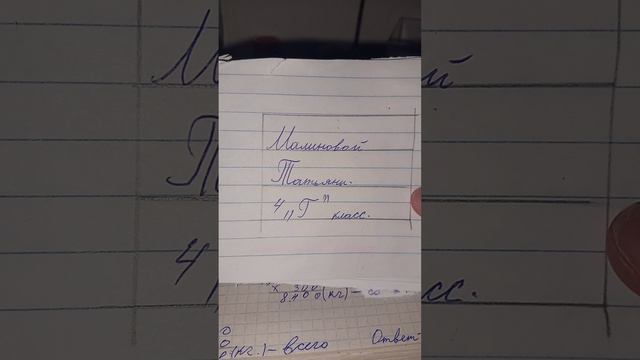 Малиновой
Татьяни.
4 „Г" класс.
х 300
8400(кг) – со
(кг.) – всего Ответ